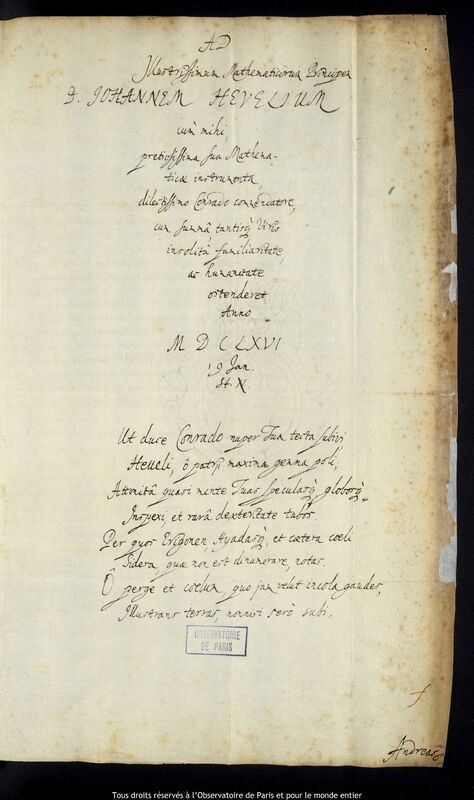 AD
Illustrissimum Mathematicorum Principem
D. JOHANNEM HEVELIUM
cùm mihi,
pretiosissima sua Mathema-
ticae instrumenta,
dilectissimo Conrado conzendatore,
cum summâ, tantisq́ Viris
insolitâ familiaritate,
ac humanitate
ostenderet.
Anno
M D C LXVI
19 Jan.
St. N.
Ut duce Conrado nuper Tua tecta subivi
Heveli, ô patrij maxima gemma poli,
Attonitâ quasi mente Tuas specularq́, globosq́
Inspexi, et rarâ dexteritate tubos.
Per quos Erigonen, Ayadasq́, et caetera coeli
Sidera, quae non est dinumerare, notas.
Ô perge et coelum, quo jam velut incola gaudes,
Illustrans terras, nonnisi serò subi.
OBSERVATOIRE
DE PARIS
f
Andreas
Tous droits réservés à l'Observatoire de Paris et pour le monde entier